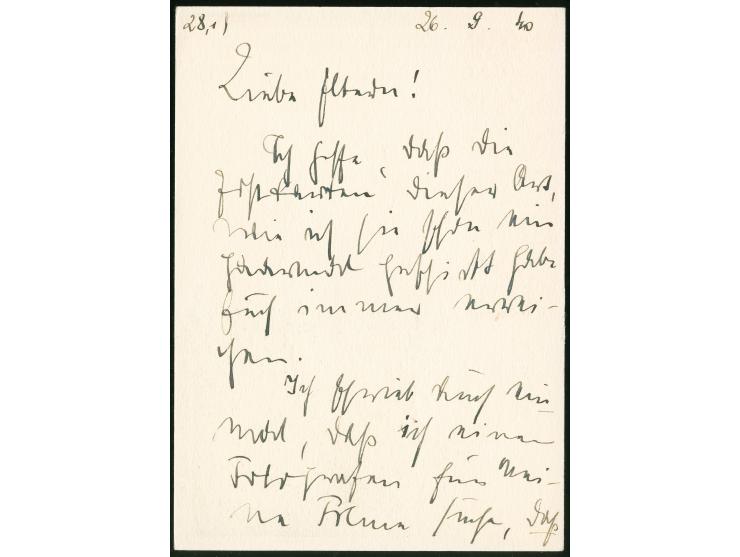 28,1) 26. 9. 40
Liebe Eltern!
Ich hoffe, daß die
Postkarten dieser Art,
wie ich sie schon ein
paarmal geschickt habe
Euch immer errei-
chen.
Ich schrieb Euch ein-
mal, daß ich einen
Fotografen für mei-
ne Filme suche, daß